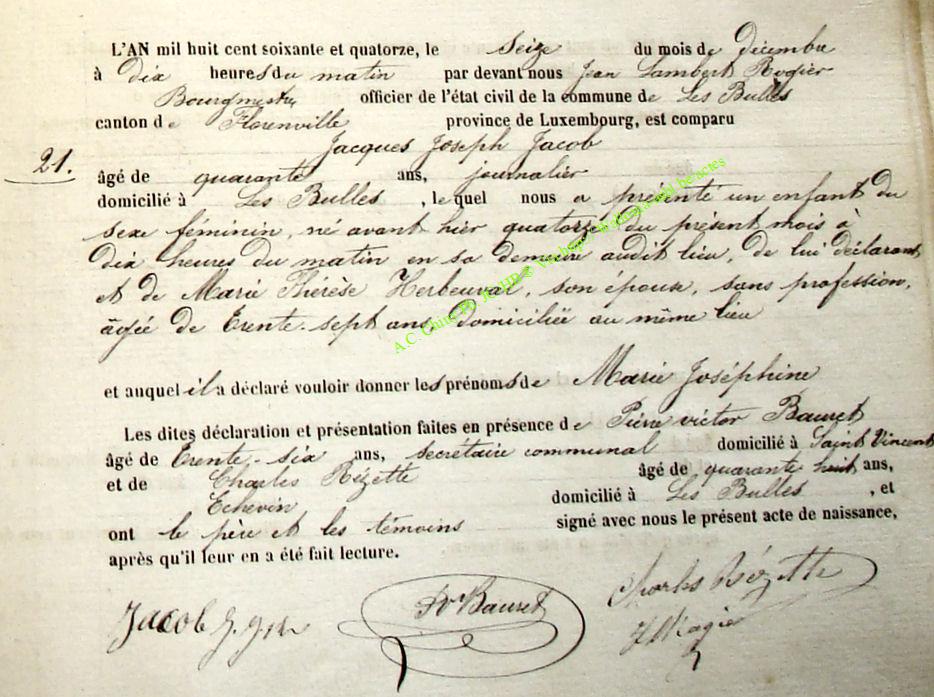 L'AN mil huit cent soixante et quatorze, le seize du mois de décembre
à dix heures du matin par devant nous Jean Lambert Rogier
Bourgmestre officier de l'état civil de la commune de Les Bulles
canton de Florenville province de Luxembourg, est comparu
Jacques Joseph Jacob
21.
âgé de quarante ans, journalier
domicilié à Les Bulles, lequel nous a présenté un enfant du
sexe féminin, né avant hier quatorze du présent mois à
dix heures du matin en sa demeure audit lieu, de lui déclarant
et de Marie Thérèse Herbeuval, son épouse, sans profession,
âgée de trente-sept ans domiciliée au même lieu
et auquel il a déclaré vouloir donner les prénoms de Marie Joséphine
Les dites déclaration et présentation faites en présence de Pierre victor Bauret
âgé de trente-six ans, secrétaire communal domicilié à Saint Vincent
et de Charles Rézette âgé de quarante huit ans,
Echevin domicilié à Les Bulles, et
ont le père et les témoins signé avec nous le présent acte de naissance,
après qu'il leur en a été fait lecture.
Jacob J.
Bauret
Charles Rézette
A.C. Chiny